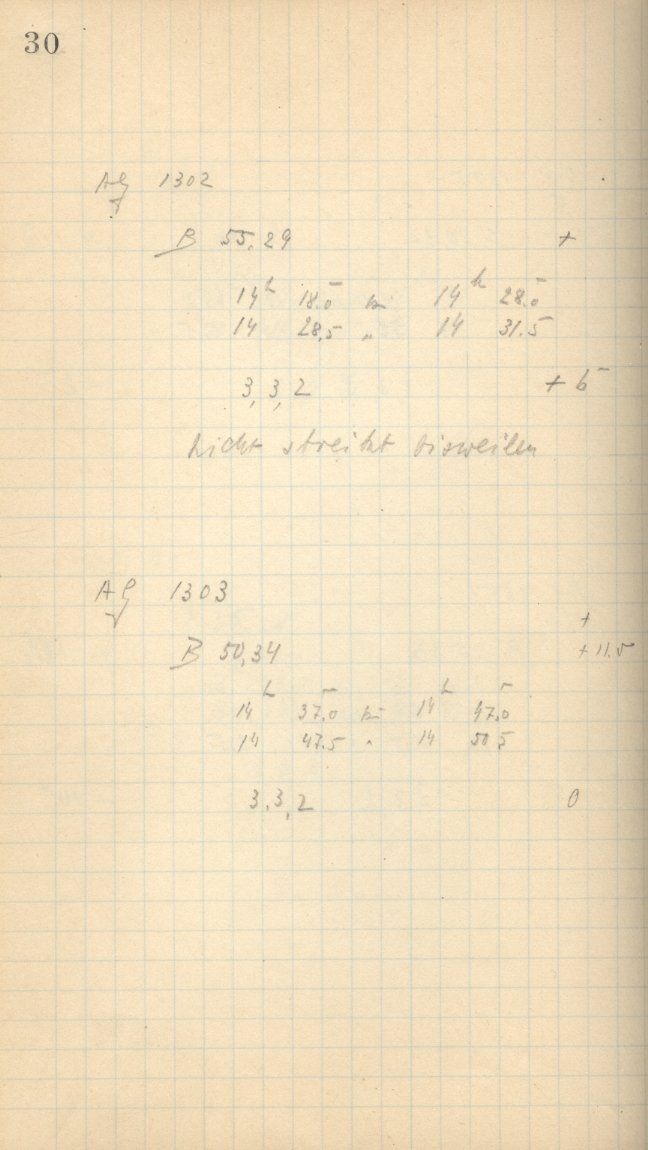 30
AG 1302
B 55,29 +
14h 18.0 bis 14h 28.0
14 28,5 " 14 31.5
3,3,2 + 6
Licht streikt bisweilen
AG 1303
+
B 50,34 + 11.5
14h 37.0 bis 14h 47.0
14 47.5 " 14 50 5
3,3,2 0